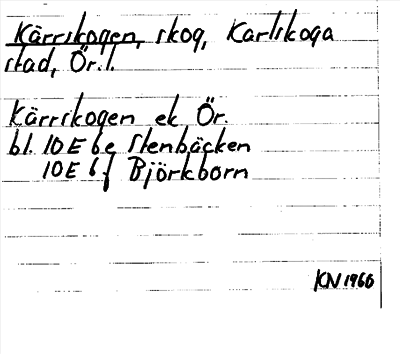 Kärrskogen, skog, Karlskoga
stad, Ör. l.
Kärrskogen ek Ör.
bl. 10E 6e Stenbäcken
10E 6f Björkborn
KN 1966